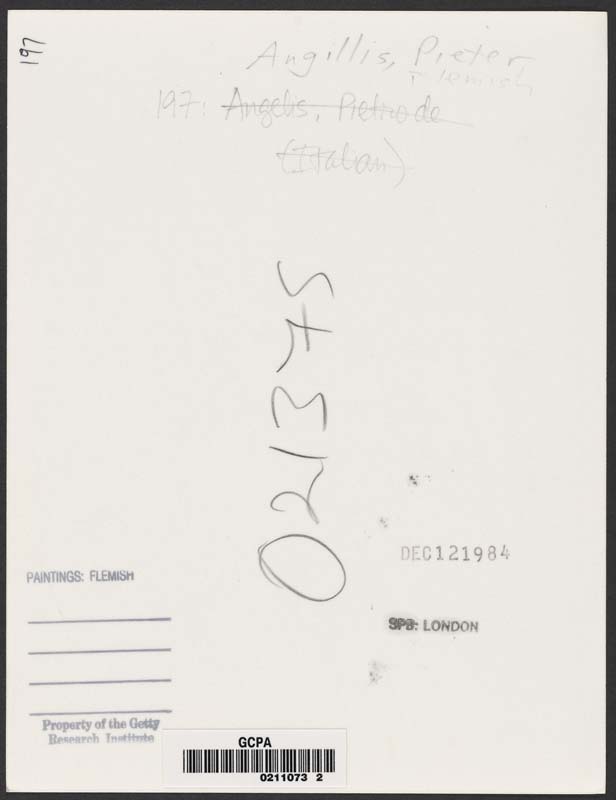 197
Angillis, Pieter
Flemish
197: Angelis, Pietro de
(Italian)
02137S
DEC 12 1984
SPB: LONDON
PAINTINGS: FLEMISH
Property of the Getty
Research Institute
GCPA
0211073 2